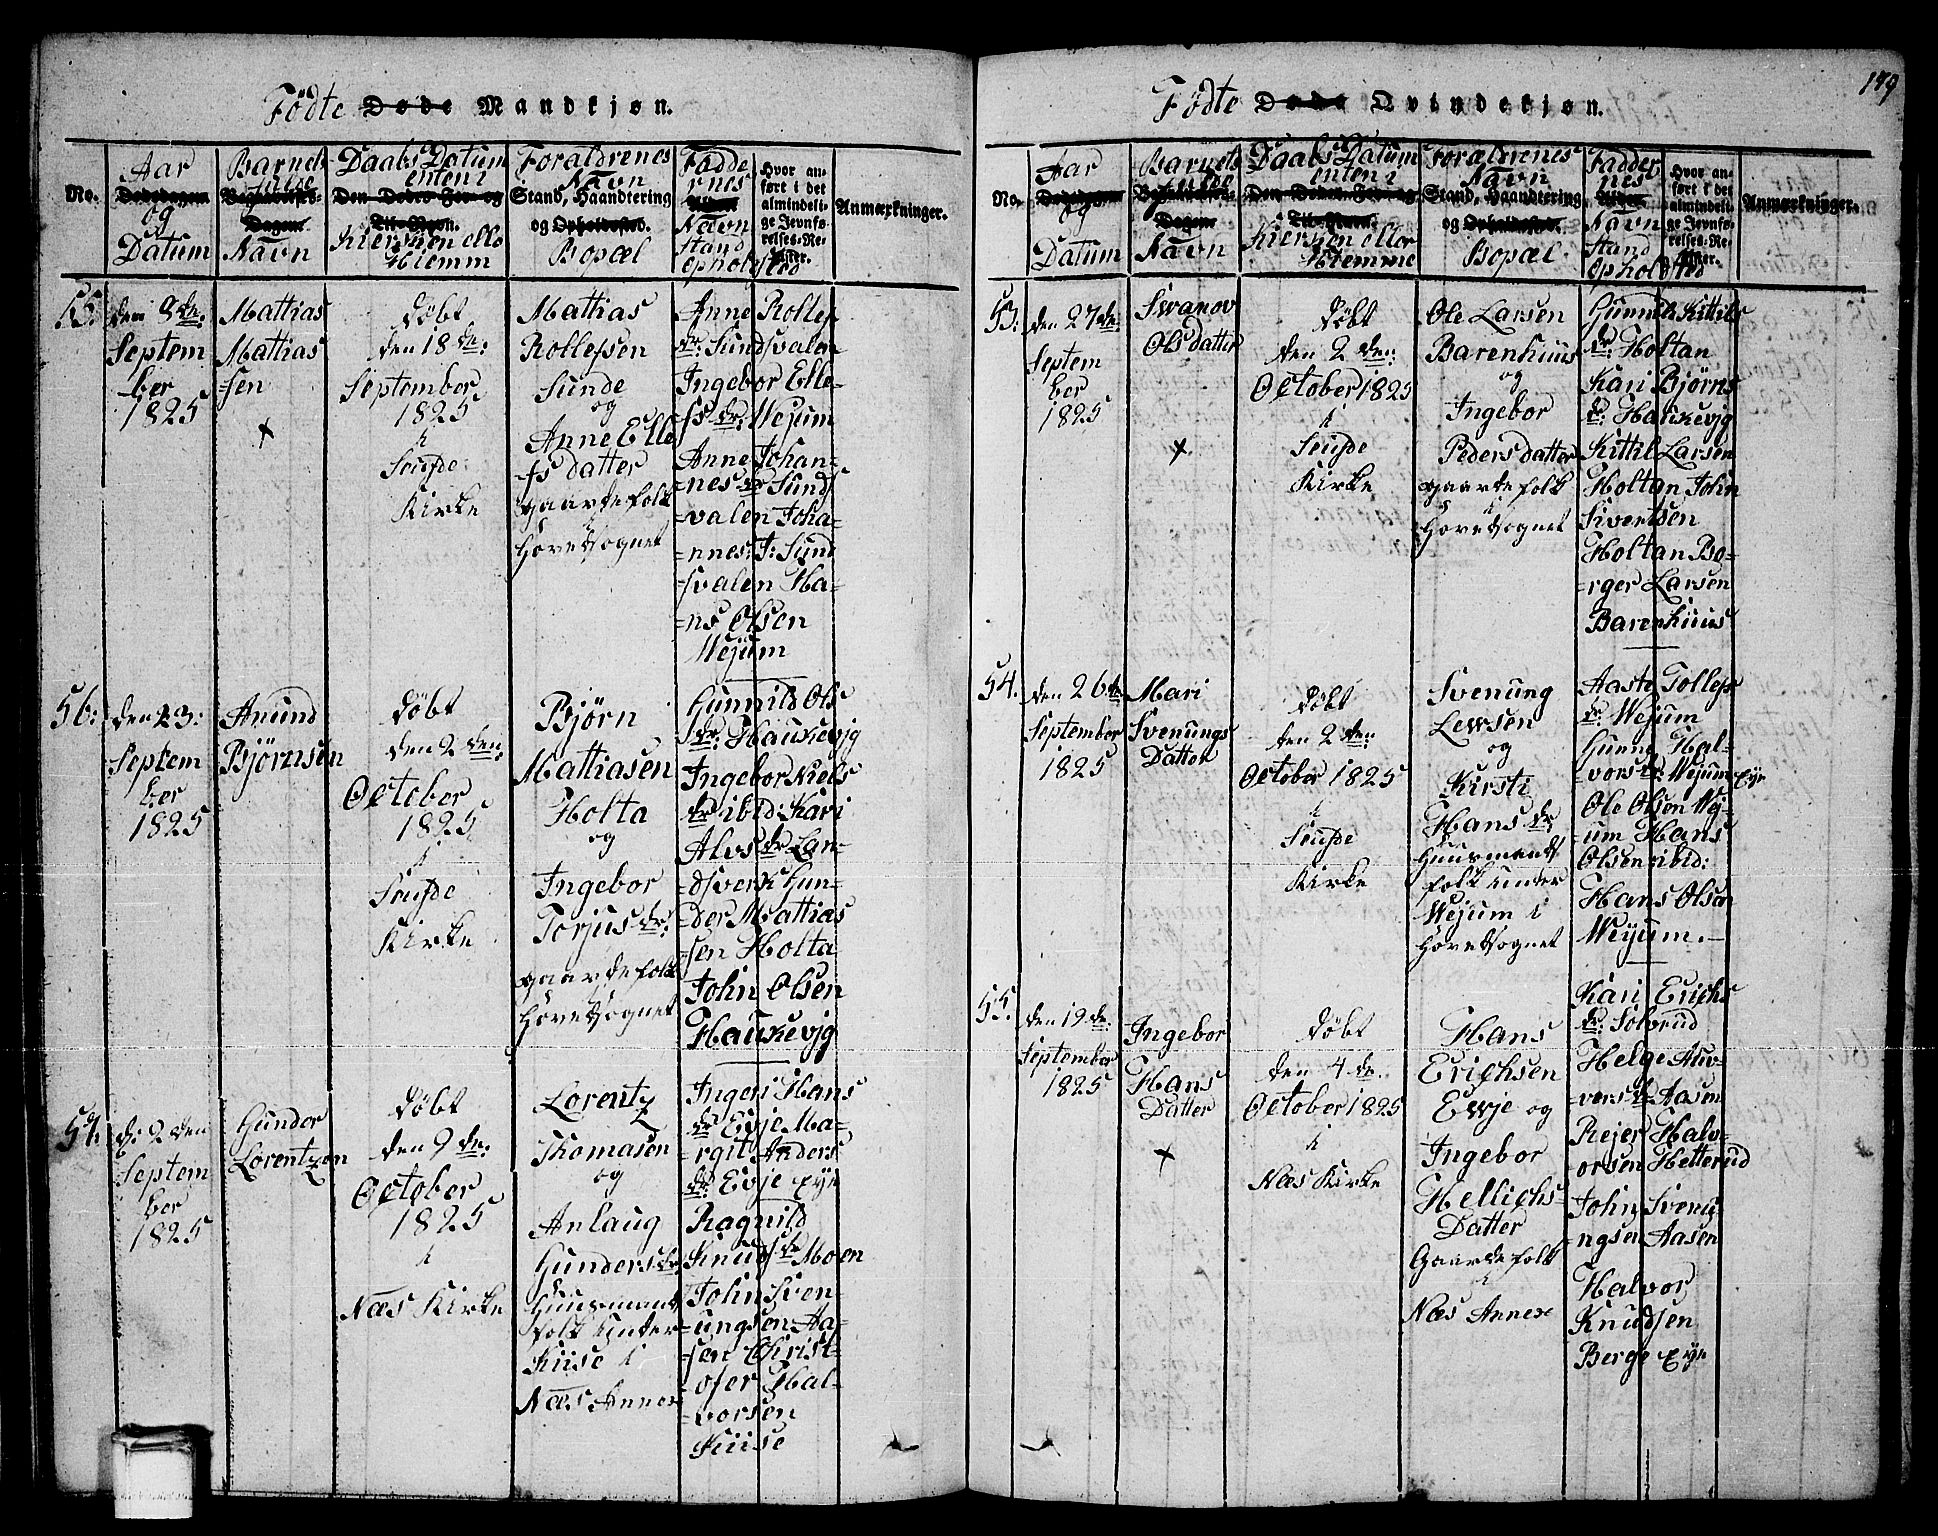 179
Födte Døde Mandkjøn.
No.
Aar
Dødsdagen
og
Datum
Barnets
fulde
Begravelses-
Dagen
Navn
Daabs Datum
enten i
Den Dødes For og
Til-Navn.
Kierken eller
Hiemm
Forældrenes
Navn
Stand, Haandtering
og Opholdssted.
Bopæl
Fadde
rnes
Alder
Navn
Stand
Opholdsted
Hvor an-
ført i det
almindeli-
ge Jevnfø-
relses-Re-
gister.
Anmærkninger.
55:
den 8de:
Septem
ber
1825
Mathias
Mattias
-sen
+
døbt
den 18de:
September
1825
i
Seufde
Kirke
Mathias
Rollefsen
Sunde
og
Anne Elle
fs datter
gaardefolk
i
Hovedsognet
Anne Rollefs
dr: Sundsvalen
Ingebor Elle-
fs dr: Wejum
Anne Johan-
nes dr Sunds
-valen Joha-
-nnes: J: Sund
-svalen Ha-
-ns Olsen
Wejum
56:
den 23:
Septem
ber
1825
Anund
Bjørnsen
døbt
den 2den:
October
1825
i
Seufde
Kirke
Bjørn
Mattiasen
Holta
og
Ingebor
Torjus dr:
gaardefolk
Hovedsognet
Gunnild Ols
dr: Haukevjg
Ingebor Niels
dr ibid: Kari
Alvs dr Lan-
-dsverk Gun-
-der Mathias
-sen Holta
John Olsen
Haukevjg
57:
d: 2den
Septem
ber
1825
Gunder
Lorentzon
døbt
den 9de:
October
1825
i
Næs Kirke
Lorentz
Thomasen
og
Anlaug
Gunders dr
Huusmand
folk under
Kiise i
Næs Annex
Ingeri Hans
dr Evje Ma-
-rgit Anders
dr: Evje eye
Ragnild
Knuds dr Moen
John Sven-
-ungsen Aa-
-sen Christ-
-ofer Hal-
-vorsen
Kiise
Födte Døde Qvindekjøn.
No.
Aar
Dødsdagen
og
Datum
Barnets
fulde
Begravelses-
Dagen
Navn
Daabs Datum
enten i
Den Dødes For og
Til-Navn.
Kierken eller
Hiemme
Forældrenes
Navn
Stand, Haandtering
og Opholdssted.
Bopæl
Fadder
nes
Alder
Navn
Stand
Opholdsted
Hvor an-
ført i det
almindeli-
ge Jevnfø-
relses-Re-
gister.
Anmærkninger.
53:
den 27de:
Septem
ber
1825
Svanov
Olsdatter
+
døbt
den 2den:
October 1825
i
Seufde
Kirke
Ole Larsen
Barenhiius
og
Ingebor
Pedersdatter
gaardefolk
i
Hovedsognet
Gunnild Kittils
dr Holtan
Kari Bjørns
dr: Haukevjg
Kittil Larsen
Holtan John
Sivertsen
Holtan Bo-
-rger Larsen
Barenhiius
54.
den 26de
September
1825
Mari
Svenungs
Datter
døbt
den 2den:
October 1825
i
Seufde
Kirke
Svenung
Lewsen
og
Kirsti
Hans dr
Huusmands
folk under
Wejum i
Hovedsognet
Aaste Tollefs
dr: Wejum
Gunne Hal-
-vors dr: Wejum eye
Ole Olsen Wej-
-um Hans
Olsen ibid:
Hans Olsen
Weyum.-
55.
den 19de:
September
1825
Ingebor
Hans
Datter
+
døbt
den 4de.
October 1825
i
Næs Kirke
Hans
Erichsen
Ewje og
Ingebor
Hellichs-
Datter
Gaardefolk
i
Næs Annexe
Kari Erichs
dr: Solvrud
Helge Auv-
-vors dr Aasen
Rejer Halv-
orsen Hetterud
John Sven-
ngsen Aasen
Halvor
Knudsen
Berge eye